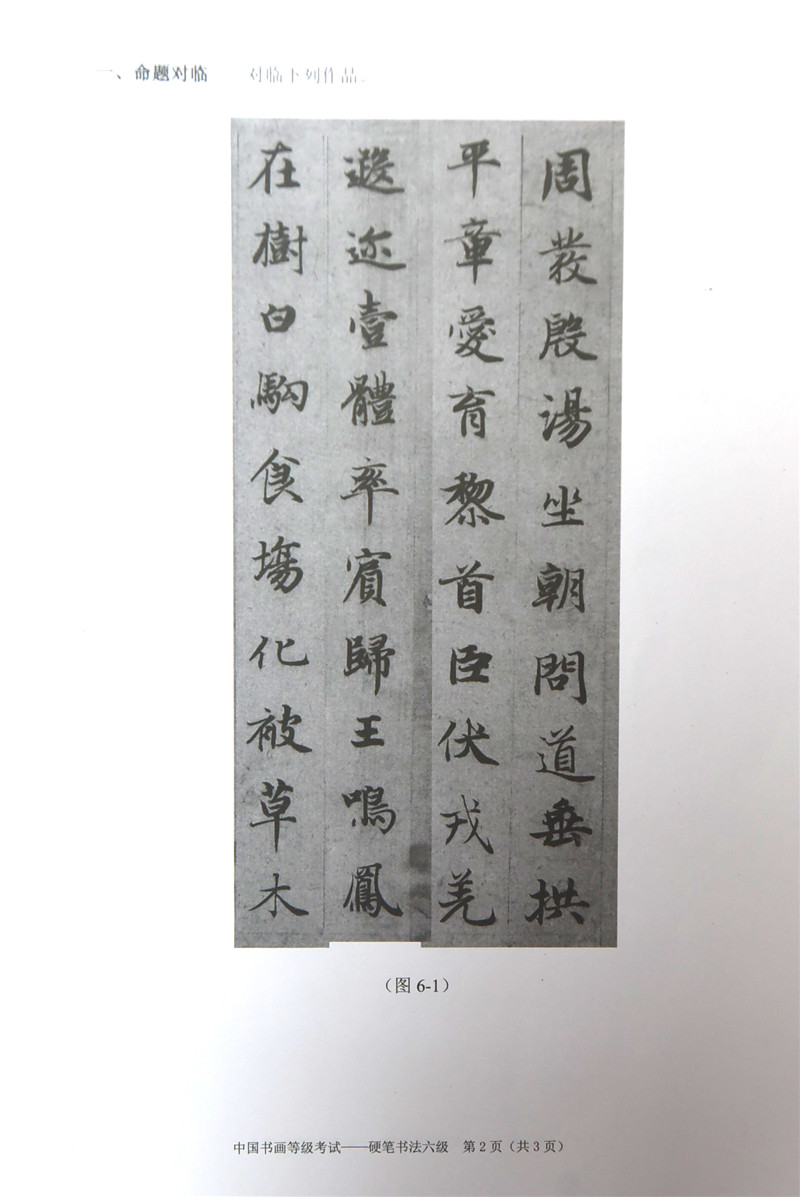 一、命题对临 对临下列作品。
周發殷湯坐朝問道垂拱
平章愛育黎首臣伏戎羌
遐迩壹體率賓歸王鳴鳳
在樹白駒食場化被草木
（图 6-1）
中国书画等级考试——硬笔书法六级 第 2 页（共 3 页）